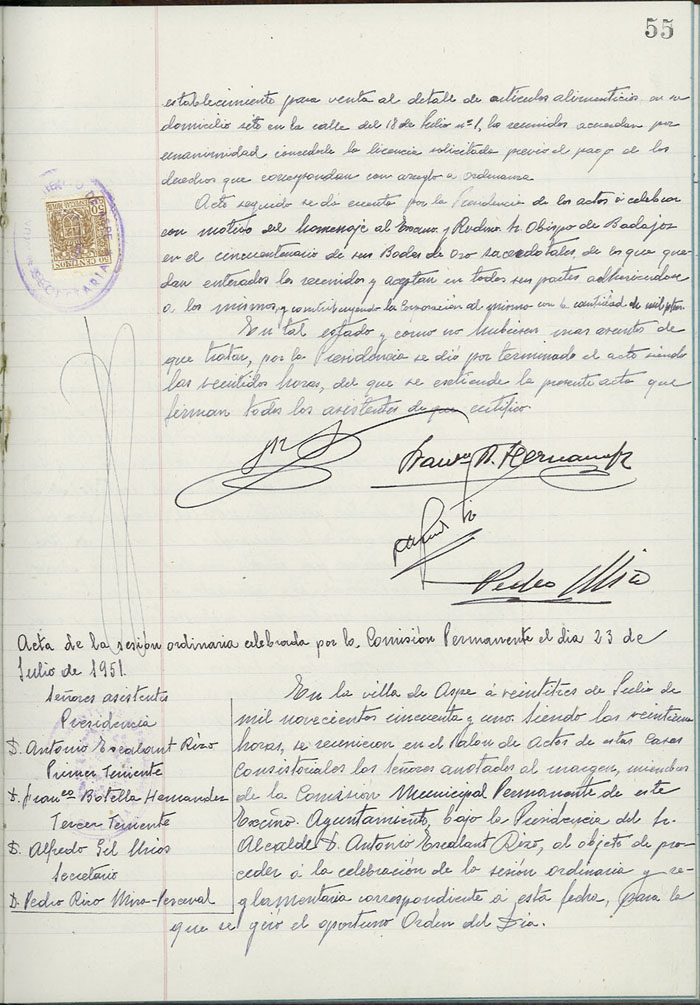 55
establecimiento para venta al detall de artículos alimenticios en su
domicilio sito en la calle del 18 de Julio nº 1, los reunidos acuerdan por
unanimidad concederle la licencia solicitada previo el pago de los
derechos que correspondan con arreglo a ordenanza.
Acto seguido se dá cuenta por la Presidencia de los actos á celebrar
con motivo del homenaje al Excmo. y Rvdmo. Sr. Obispo de Badajoz
en el cincuentenario de sus Bodas de Oro sacerdotales, de lo que que-
dan enterados los reunidos y aceptan en todas sus partes adhiriendose
a los mismos, y contribuyendo la Corporación al mismo con la cantidad de mil ptas.
En tal estado y como no hubiesen mas asuntos de
que tratar, por la Presidencia se dió por terminado el acto siendo
las veintidos horas, del que se extiende la presente acta que
firman todos los asistentes de que certifico.
50 CENTIMOS
SECRETARIA
Hernandez
Pedro Miro
Acta de la sesión ordinaria celebrada por la Comisión Permanente el dia 23 de
Julio de 1951.
Señores asistentes
Presidencia
D. Antonio Escalant Rizo
Primer Teniente
D. Franco Botella Hernandez
Tercer Teniente
D. Alfredo Gil
Secretario
D. Pedro Rizo Mira-Perceval
En la villa de Aspe á veintitres de Julio de
mil novecientos cincuenta y uno. Siendo las veintiuna
horas, se reunieron en el Salon de Actos de estas Casas
Consistoriales los Señores anotados al margen, miembros
de la Comisión Municipal Permanente de este
Excmo. Ayuntamiento, bajo la Presidencia del Sr.
Alcalde D. Antonio Escalant Rizo, al objeto de pro-
ceder á la celebración de la sesión ordinaria y re-
glamentaria correspondiente á esta fecha, para la
que se giró el oportuno Orden del Dia.